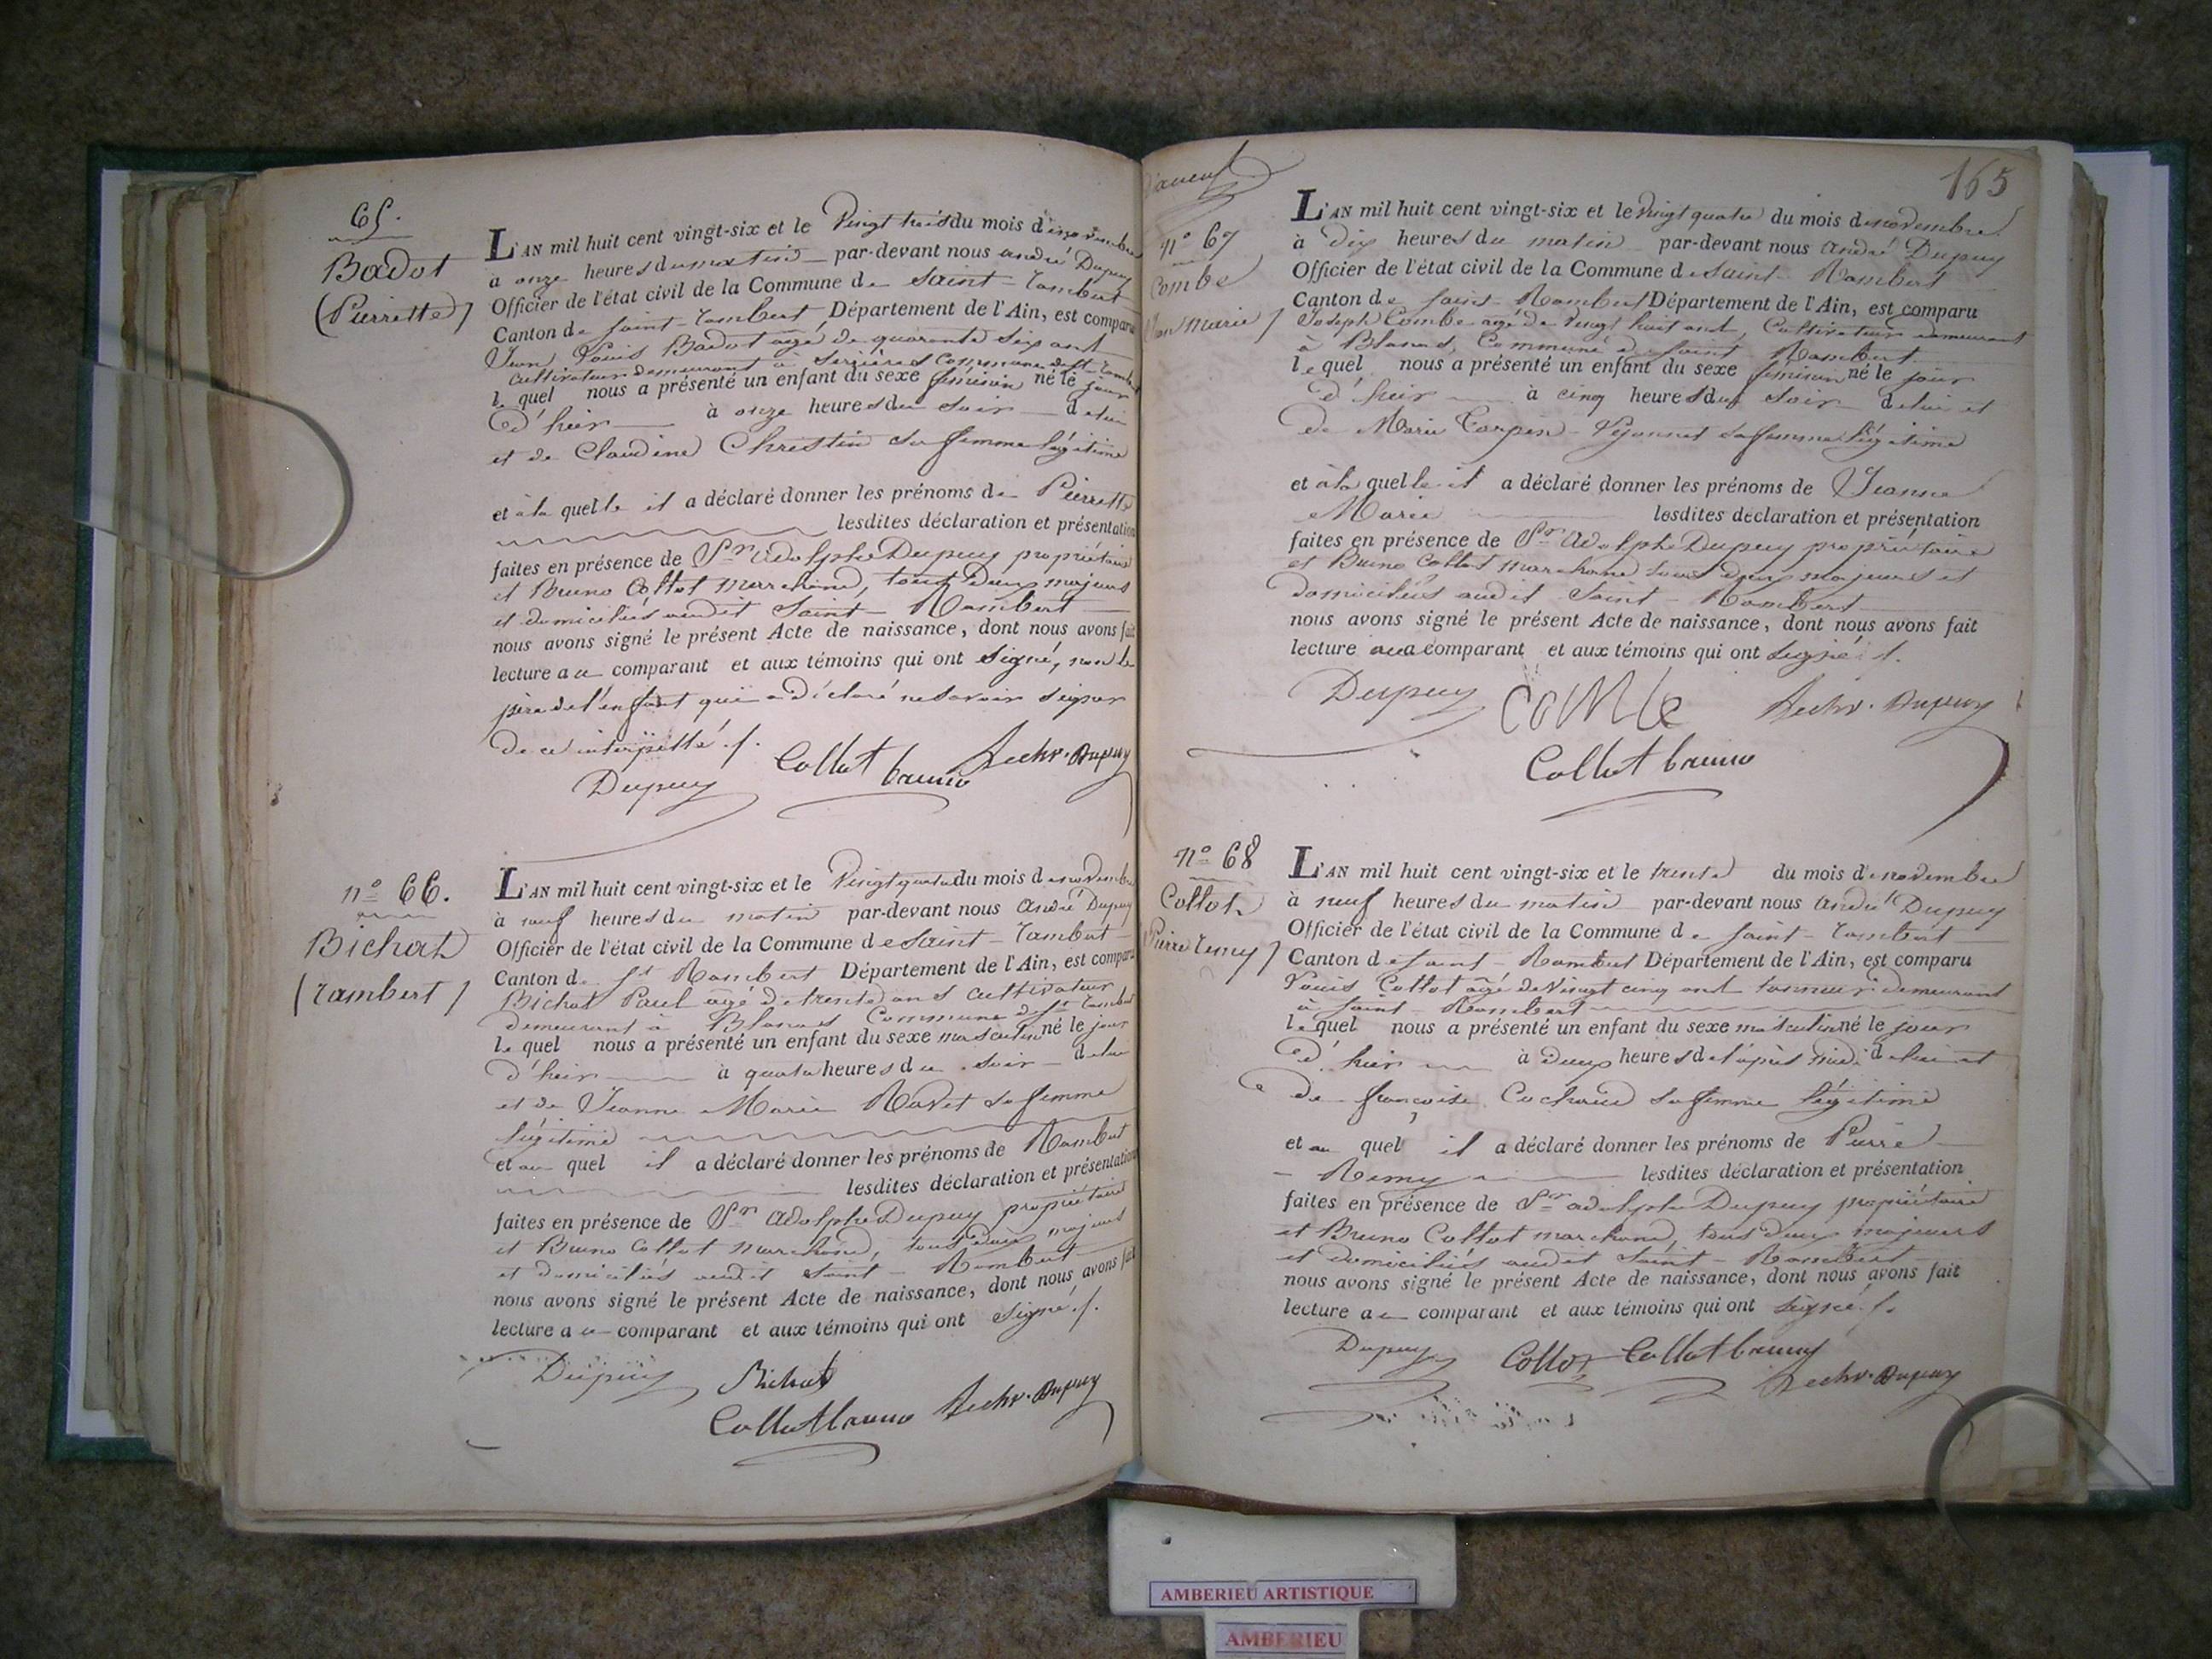 65.
Badot
(Pierrette)
L'AN mil huit cent vingt-six et le Vingt trois du mois de novembre
à onze heures du matin par-devant nous andré Dupuy
Officier de l'état civil de la Commune de Saint-rambert
Canton de Saint-rambert Département de l'Ain, est comparu
Jean Louis Badot agé de quarante six ans
cultivateur demeurant à Serrières Commune de St rambert
lequel nous a présenté un enfant du sexe féminin né le jour
d'hier à onze heures du soir de lui
et de Claudine Chrestin sa femme légitime
et à la quelle il a déclaré donner les prénoms de Pierrette
lesdites déclaration et présentation
faites en présence de Sr adolphe Dupuy propriétaire
et Bruno Collot marchand, tous deux majeurs
et domiciliés audit Saint-Rambert
nous avons signé le présent Acte de naissance, dont nous avons fait
lecture au comparant et aux témoins qui ont Signé, non le
père de l'enfant qui a déclaré ne savoir signer
de ce interpellé ./.
Dupuy Collot bruno Dupuy
n° 66.
Bichat
(rambert)
L'AN mil huit cent vingt-six et le Vingt quatre du mois de novembre
à neuf heures du matin par-devant nous André Dupuy
Officier de l'état civil de la Commune de Saint-rambert
Canton de St Rambert Département de l'Ain, est comparu
Bichat Paul agé de trente ans cultivateur
demeurant à Blanas Commune de St rambert
lequel nous a présenté un enfant du sexe masculin né le jour
d'hier à quatre heures du soir de lui
et de Jeanne Marie Ravet sa femme
légitime
et au quel il a déclaré donner les prénoms de Rambert
lesdites déclaration et présentation
faites en présence de Sr adolphe Dupuy propriétaire
et Bruno Collot marchand, tous deux majeurs
et domiciliés audit Saint-Rambert
nous avons signé le présent Acte de naissance, dont nous avons fait
lecture au comparant et aux témoins qui ont Signé ./.
Dupuy Bichat
Collot bruno Dupuy
165
n° 67
Combe
Marie)
L'AN mil huit cent vingt-six et le Vingt quatre du mois de novembre
à dix heures du matin par-devant nous André Dupuy
Officier de l'état civil de la Commune de Saint-Rambert
Canton de Saint-Rambert Département de l'Ain, est comparu
Joseph Combe agé de Vingt huit ans, Cultivateur demeurant
à Blanas, Commune de Saint-Rambert
lequel nous a présenté un enfant du sexe féminin né le jour
d'hier à cinq heures du soir de lui et
de Marie sa femme légitime
et à la quelle il a déclaré donner les prénoms de Jeanne
Marie lesdites déclaration et présentation
faites en présence de Sr Adolphe Dupuy propriétaire
et Bruno Collot marchand tous deux majeurs et
domiciliés audit Saint-Rambert
nous avons signé le présent Acte de naissance, dont nous avons fait
lecture au comparant et aux témoins qui ont Signé ./.
Dupuy Combe Dupuy
Collot bruno
n° 68
Collot
Pierre remy)
L'AN mil huit cent vingt-six et le trente du mois de novembre
à neuf heures du matin par-devant nous André Dupuy
Officier de l'état civil de la Commune de Saint-rambert
Canton de Saint-Rambert Département de l'Ain, est comparu
Louis Collot agé de Vingt cinq ans tanneur demeurant
à Saint-Rambert
lequel nous a présenté un enfant du sexe masculin né le jour
d'hier à deux heures de l'après midi de lui et
de françoise Cochard sa femme légitime
et au quel il a déclaré donner les prénoms de Pierre
Remy lesdites déclaration et présentation
faites en présence de Sr adolphe Dupuy propriétaire
et Bruno Collot marchand, tous deux majeurs
et domiciliés audit Saint-Rambert
nous avons signé le présent Acte de naissance, dont nous avons fait
lecture au comparant et aux témoins qui ont Signé ./.
Dupuy Collot Collot bruno
Dupuy
AMBERIEU ARTISTIQUE
AMBERIEU